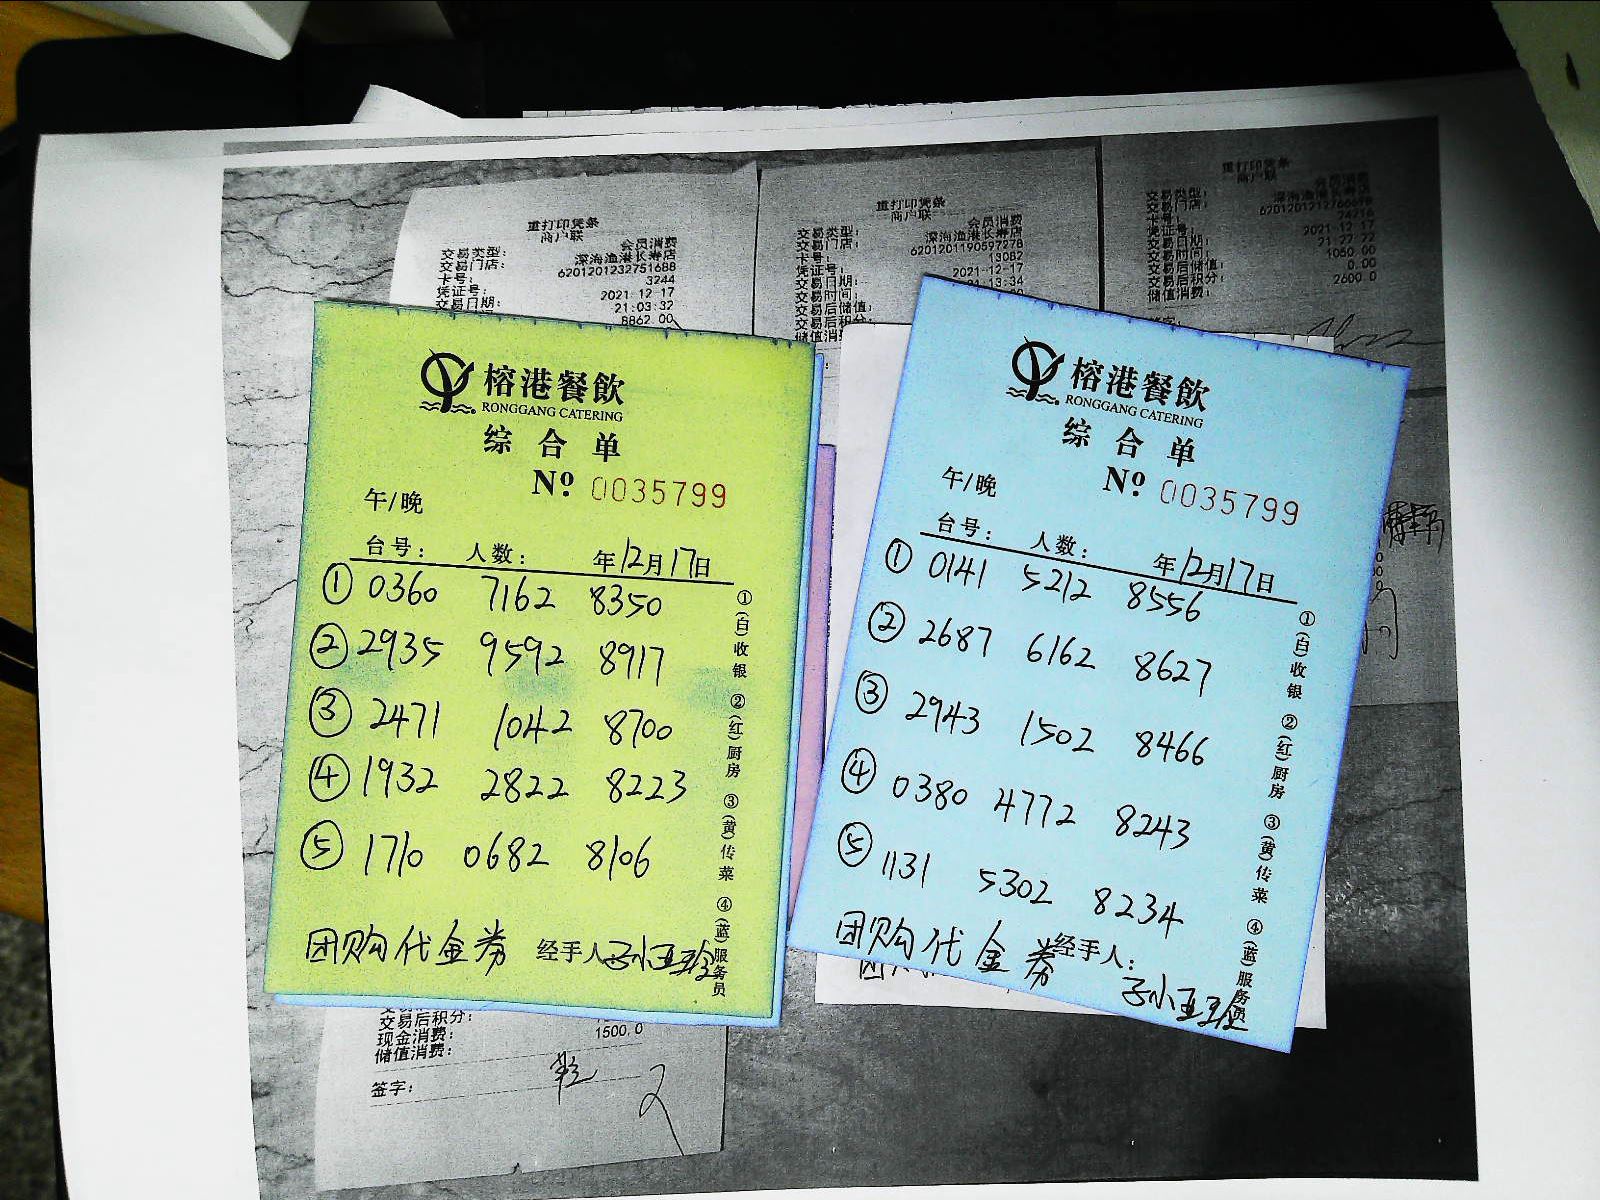 重打印凭条
商户联
交易类型： 会员消费
交易门店： 深海渔港长寿店
卡号： 6201201232751688
凭证号： 3244
交易日期： 2021-12-17
21:03:32
8862.00
重打印凭条
商户联
交易类型： 会员消费
交易门店： 深海渔港长寿店
卡号： 6201201190597278
凭证号： 13082
交易日期： 2021-12-17
交易时间： 21:13:34
交易后储值：
交易后积分：
储值消费
重打印凭条
商户联
交易类型： 会员消费
交易门店： 深海渔港长寿店
卡号： 6201201212766698
凭证号： 24716
交易日期： 2021-12-17
交易时间： 21:27:22
交易后储值： 1050.00
交易后积分： 0.00
储值消费： 2600.0
签字：
榕港餐飲
RONGGANG CATERING
综合单
Nº 0035799
午/晚
台号： 人数： 年12月17日
① 0360 7162 8350
② 2935 9592 8917
③ 2471 1042 8700
④ 1932 2822 8223
⑤ 1710 0682 8106
团购代金券 经手人
①(白)收银 ②(红)厨房 ③(黄)传菜 ④(蓝)服务员
榕港餐飲
RONGGANG CATERING
综合单
Nº 0035799
午/晚
台号： 人数： 年12月17日
① 0141 5212 8556
② 2687 6162 8627
③ 2943 1502 8466
④ 0380 4772 8243
⑤ 1131 5302 8234
团购代金券 经手人：
①(白)收银 ②(红)厨房 ③(黄)传菜 ④(蓝)服务员
交易后积分：
现金消费： 1500.0
储值消费：
签字：